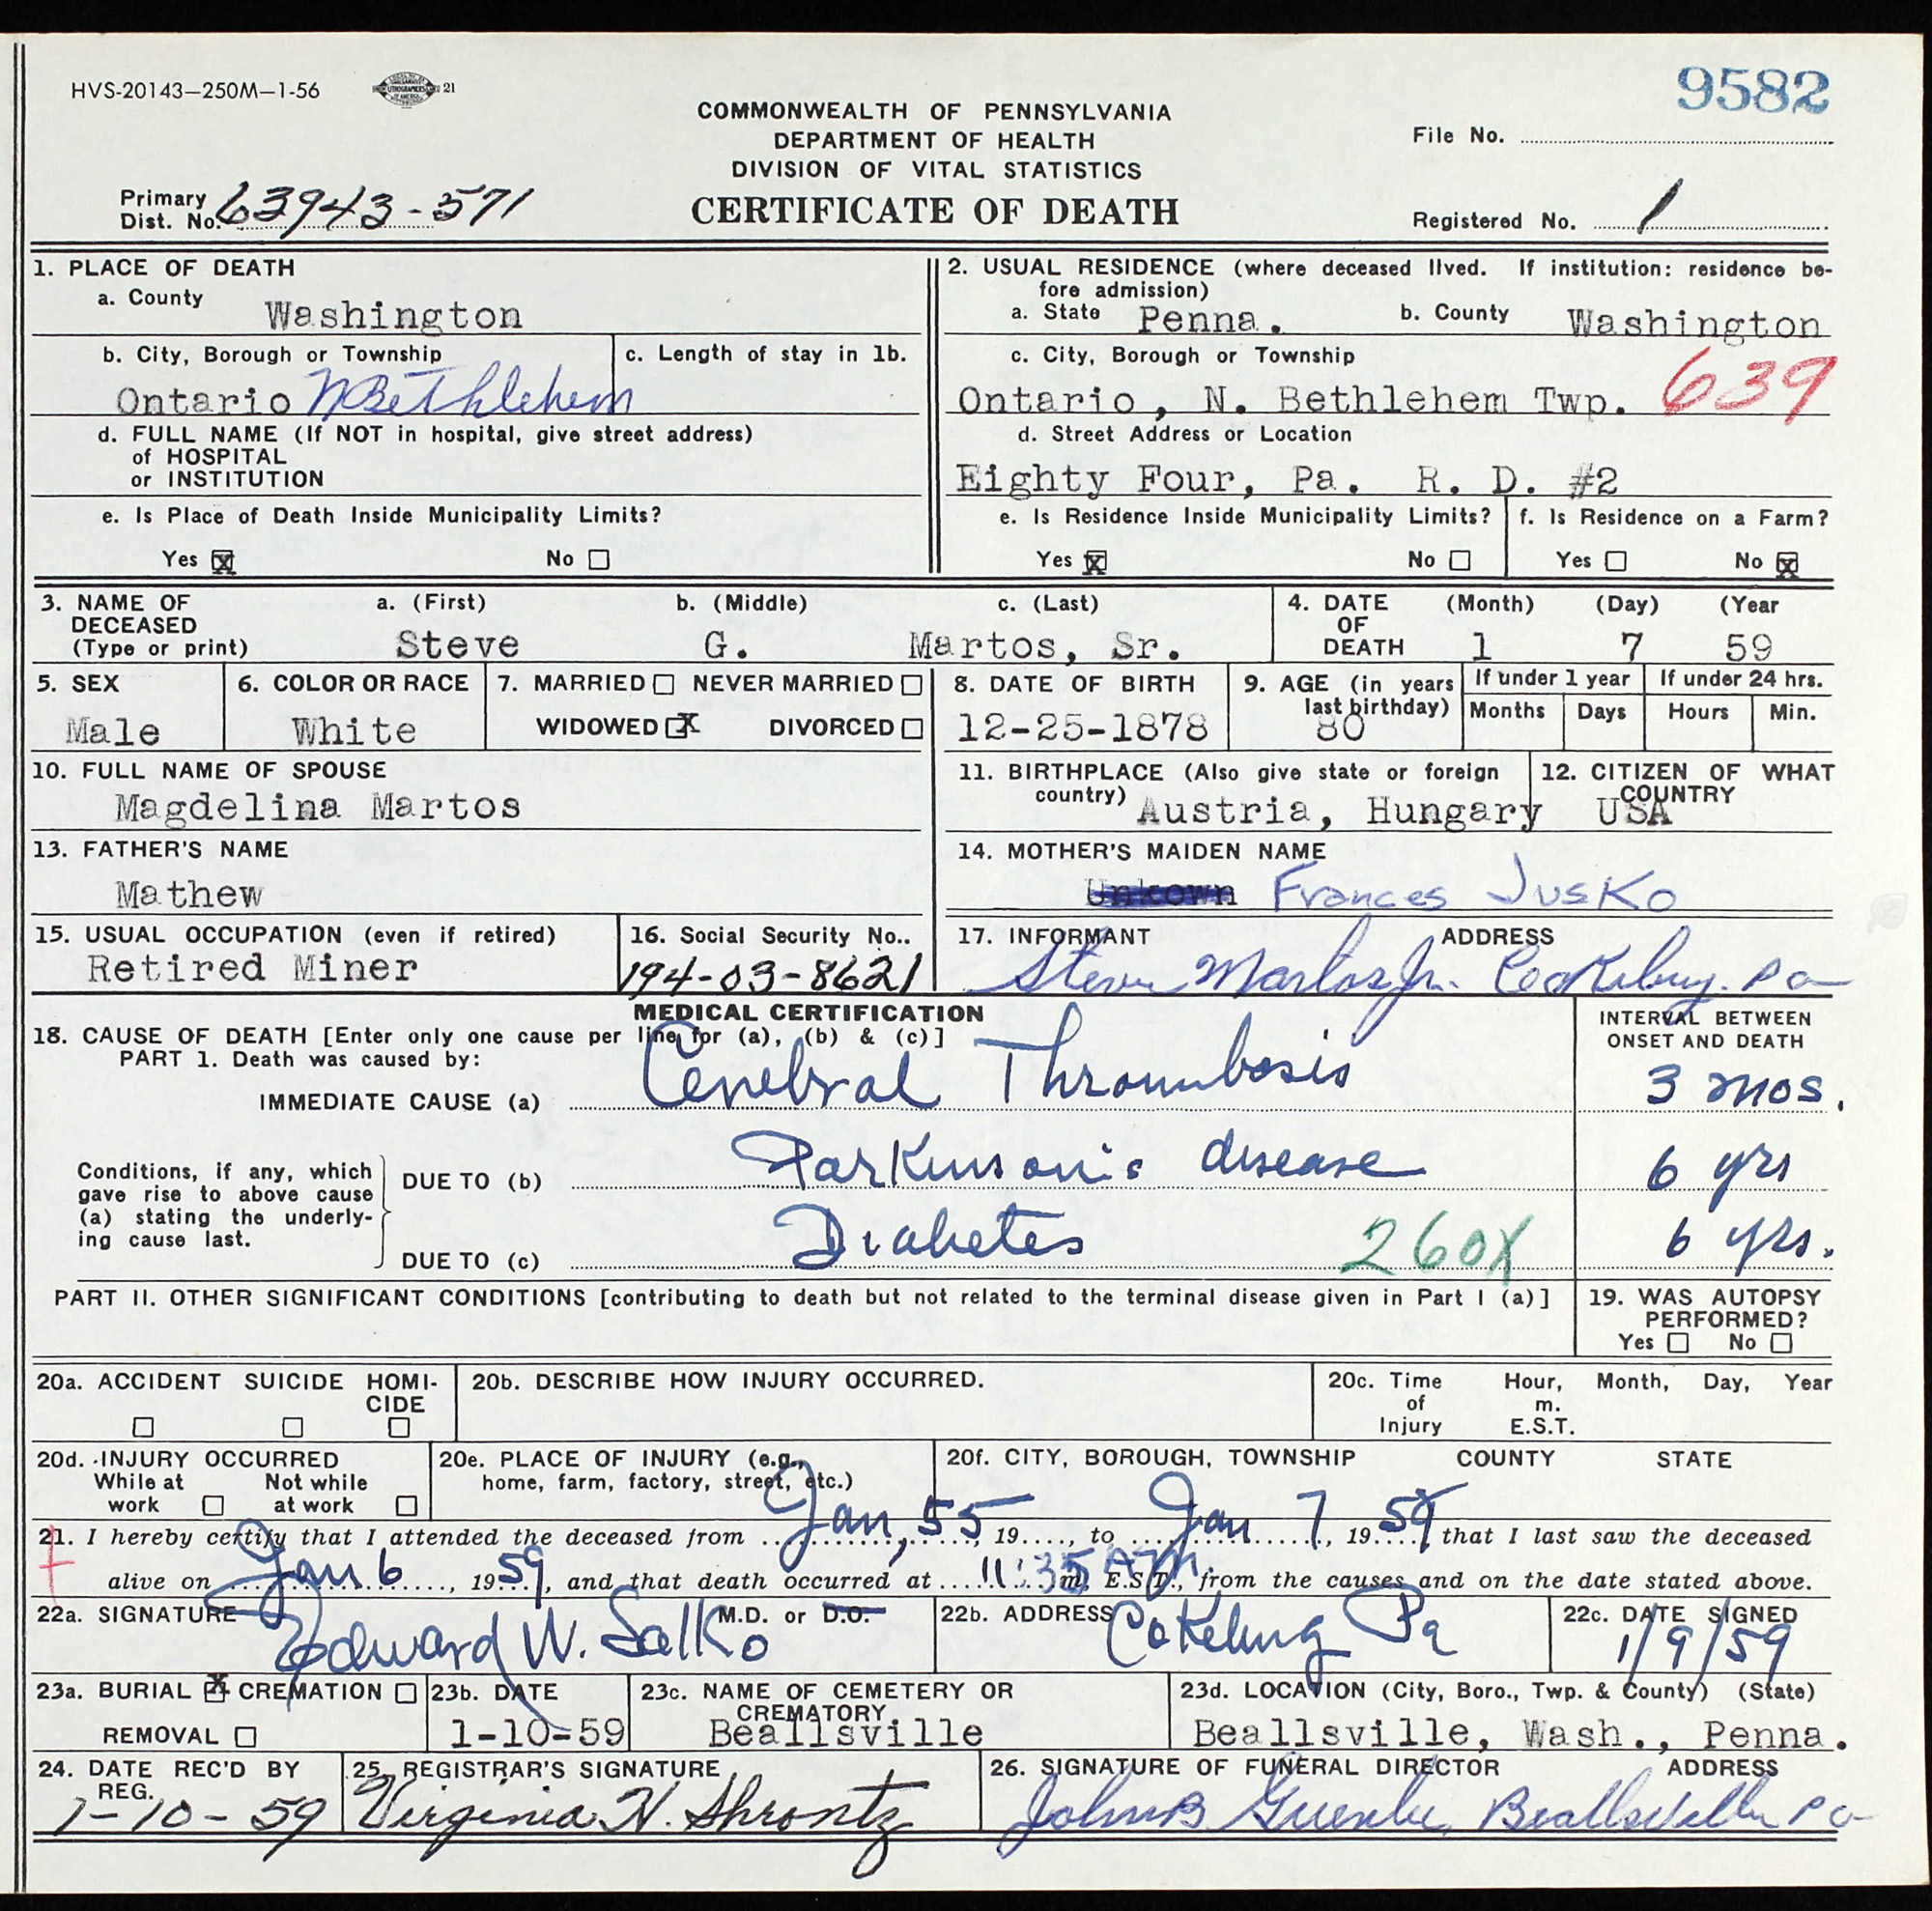 HVS-20143—250M—1-56 21
9582
COMMONWEALTH OF PENNSYLVANIA
DEPARTMENT OF HEALTH
DIVISION OF VITAL STATISTICS
CERTIFICATE OF DEATH
File No.
Primary Dist. No. 63943-571
Registered No. 1
1. PLACE OF DEATH
a. County Washington
b. City, Borough or Township
c. Length of stay in 1b.
Ontario N Bethlehem
d. FULL NAME (If NOT in hospital, give street address)
of HOSPITAL
or INSTITUTION
e. Is Place of Death Inside Municipality Limits?
Yes X No
2. USUAL RESIDENCE (where deceased lived. If institution: residence be-
fore admission)
a. State Penna. b. County Washington
c. City, Borough or Township
Ontario, N. Bethlehem Twp. 639
d. Street Address or Location
Eighty Four, Pa. R. D. #2
e. Is Residence Inside Municipality Limits?
Yes X No
f. Is Residence on a Farm?
Yes No X
3. NAME OF DECEASED (Type or print)
a. (First) b. (Middle) c. (Last)
Steve G. Martos, Sr.
4. DATE OF DEATH
(Month) (Day) (Year
1 7 59
5. SEX
Male
6. COLOR OR RACE
White
7. MARRIED NEVER MARRIED
WIDOWED X DIVORCED
8. DATE OF BIRTH
12-25-1878
9. AGE (in years
last birthday)
80
If under 1 year
Months Days
If under 24 hrs.
Hours Min.
10. FULL NAME OF SPOUSE
Magdelina Martos
11. BIRTHPLACE (Also give state or foreign
country) Austria, Hungary
12. CITIZEN OF WHAT
COUNTRY
USA
13. FATHER'S NAME
Mathew
14. MOTHER'S MAIDEN NAME
Unkown Frances Jusko
15. USUAL OCCUPATION (even if retired)
Retired Miner
16. Social Security No..
194-03-8621
17. INFORMANT ADDRESS
Steve Martos Jr. Cokeburg. Pa
MEDICAL CERTIFICATION
18. CAUSE OF DEATH [Enter only one cause per line for (a), (b) & (c)]
PART 1. Death was caused by:
INTERVAL BETWEEN
ONSET AND DEATH
IMMEDIATE CAUSE (a) Cerebral Thrombosis 3 mos.
Conditions, if any, which
gave rise to above cause
(a) stating the underly-
ing cause last.
DUE TO (b) Parkinson's disease 6 yrs
DUE TO (c) Diabetes 260X 6 yrs.
PART II. OTHER SIGNIFICANT CONDITIONS [contributing to death but not related to the terminal disease given in Part I (a)]
19. WAS AUTOPSY
PERFORMED?
Yes No
20a. ACCIDENT SUICIDE HOMI-
CIDE
20b. DESCRIBE HOW INJURY OCCURRED.
20c. Time of Injury
Hour, Month, Day, Year
m.
E.S.T.
20d. INJURY OCCURRED
While at work
Not while at work
20e. PLACE OF INJURY (e.g.,
home, farm, factory, street, etc.)
20f. CITY, BOROUGH, TOWNSHIP COUNTY STATE
21. I hereby certify that I attended the deceased from Jan, 55 19...., to Jan 7, 19 59, that I last saw the deceased
alive on Jan 6, 19 59, and that death occurred at 11:35 A M. m. E.S.T., from the causes and on the date stated above.
22a. SIGNATURE M.D. or D.O.
Edward W. Salko
22b. ADDRESS
Cokeburg Pa
22c. DATE SIGNED
1/9/59
23a. BURIAL X CREMATION
REMOVAL
23b. DATE
1-10-59
23c. NAME OF CEMETERY OR
CREMATORY
Beallsville
23d. LOCATION (City, Boro., Twp. & County) (State)
Beallsville, Wash., Penna.
24. DATE REC'D BY
REG.
1-10-59
25. REGISTRAR'S SIGNATURE
Virginia H. Shrontz
26. SIGNATURE OF FUNERAL DIRECTOR ADDRESS
John B Beallsville Pa